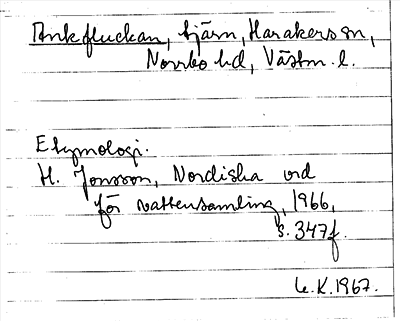 Ankfluckan, tjärn, Harakers sn,
Norrbo hd, Västm. l.
Etymologi.
H. Jonsson, Nordiska ord
för vattensamling, 1966,
s. 347f.
L.K. 1967.